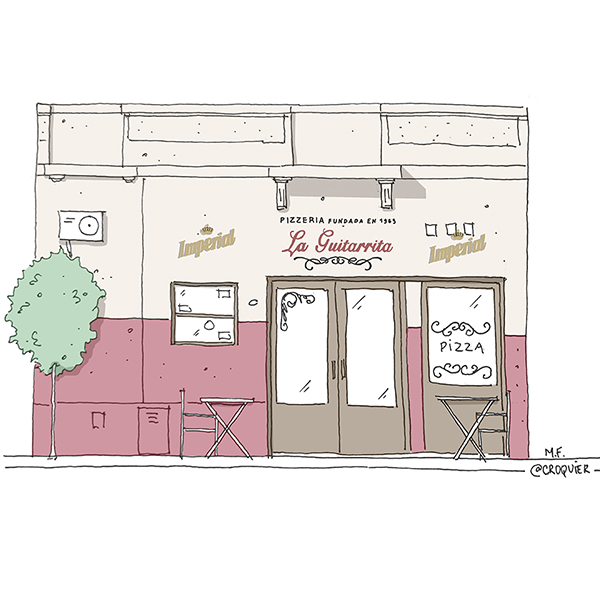 PIZZERIA FUNDADA EN 1963
La Guitarrita
Imperial
Imperial
PIZZA
M.F.
@CROQUIER